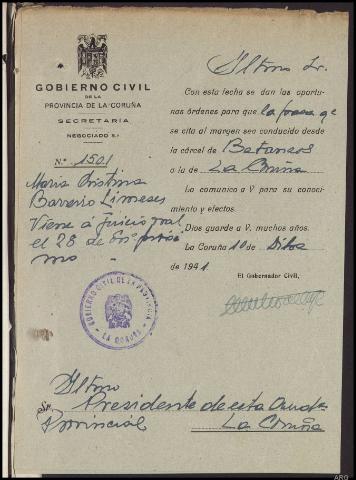 GOBIERNO CIVIL
DE LA
PROVINCIA DE LA CORUÑA
SECRETARIA
NEGOCIADO 5.º
N.º 1501
Maria Cristina
Barreiro Limeses
Viene á Juicio oral
el 28 de En.º próxi
mo
Iltmo Sr.
Con esta fecha se dan las oportu-
nas órdenes para que la presa qe
se cita al margen sea conducido desde
la cárcel de Betanzos
a la de La Coruña
Lo comunico a V para su conoci-
miento y efectos.
Dios guarde a V. muchos años.
La Coruña 10 de Dibre
de 1941
El Gobernador Civil,
GOBIERNO CIVIL DE LA PROVINCIA
LA CORUÑA
Iltmo
Sr. Presidente de esta Auda
Provincial La Coruña
ARG